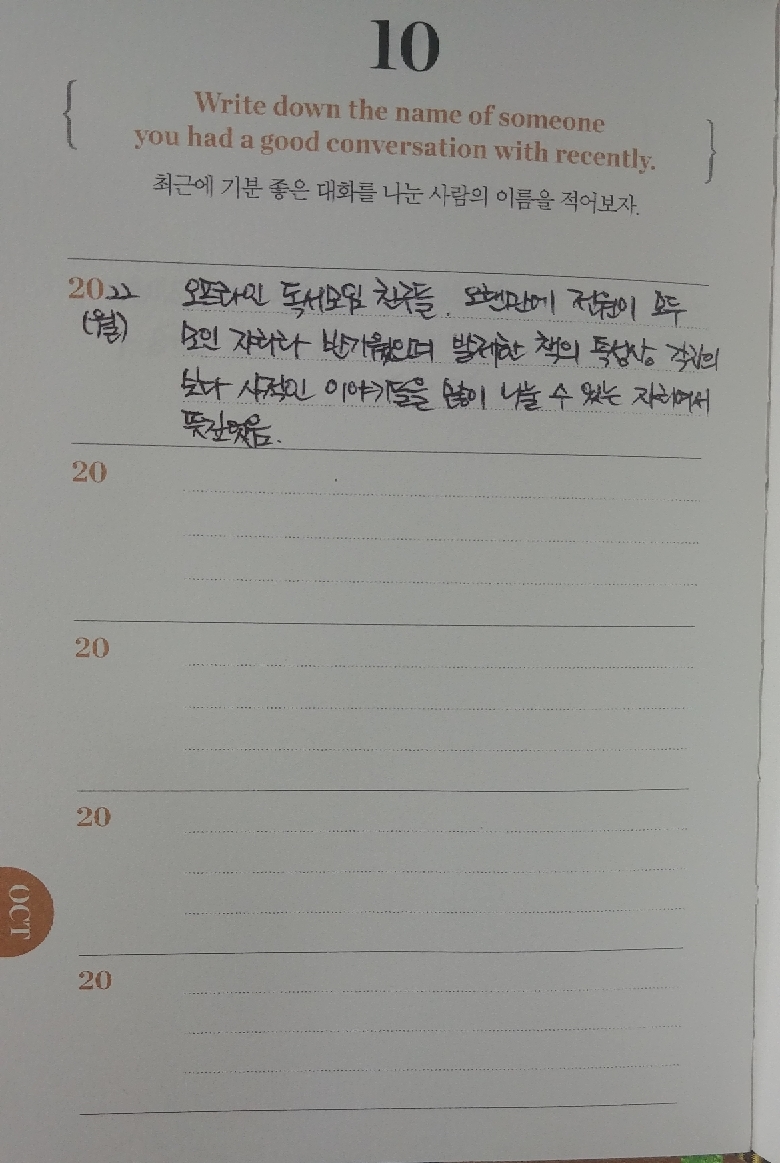 10
Write down the name of someone
you had a good conversation with recently.
최근에 기분 좋은 대화를 나눈 사람의 이름을 적어보자.
2022 오프라인 독서모임 친구들. 오랜만에 전원이 모두
(월) 모인 자리라 반가웠으며 발제한 책의 특성상 각자의
보다 사적인 이야기들을 많이 나눌 수 있는 자리여서
뜻깊었음.
20
20
20
20
OCT